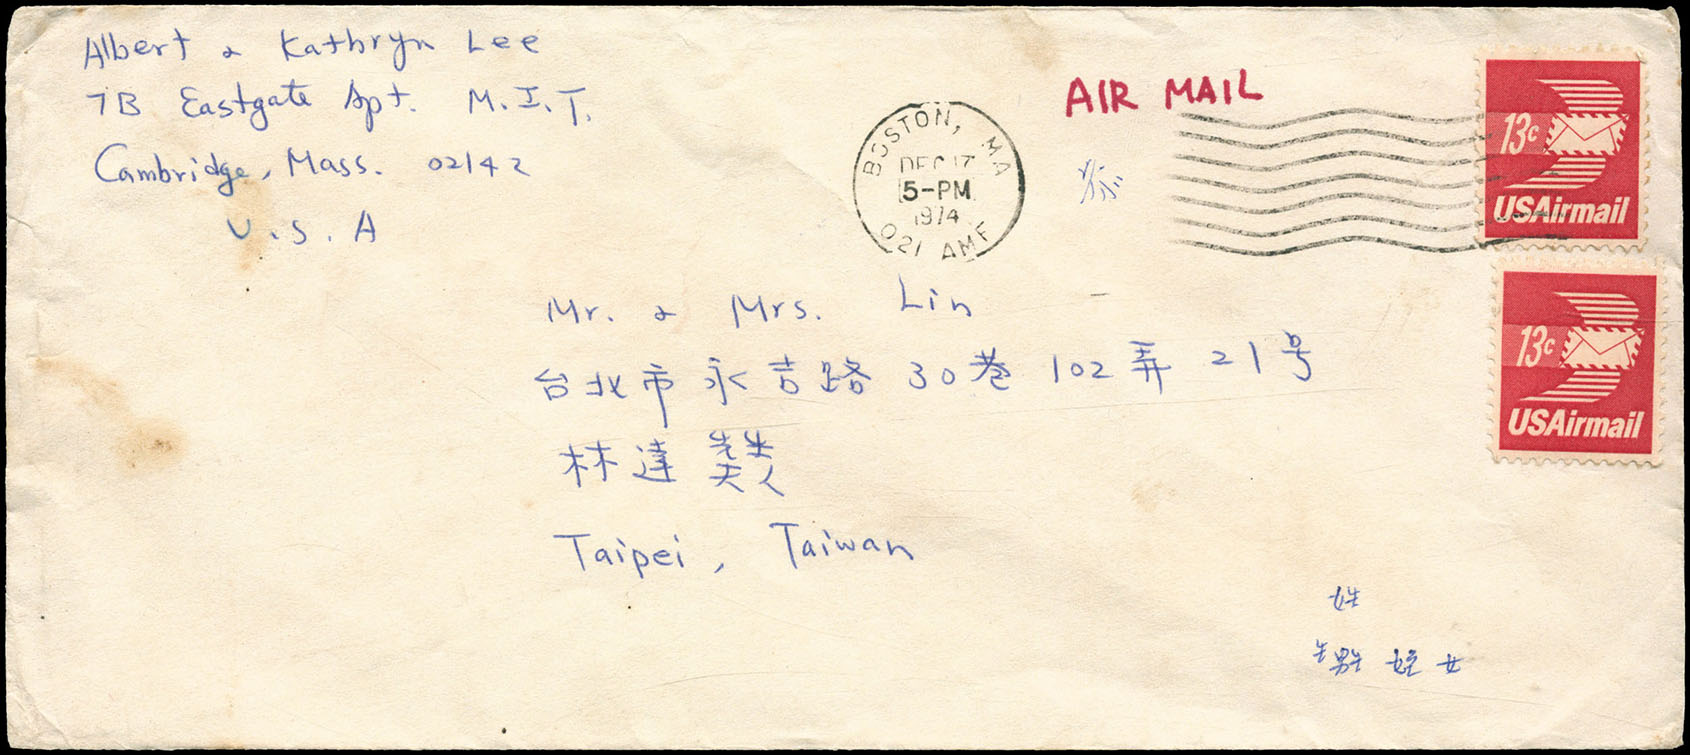 Albert & Kathryn Lee
7B Eastgate Apt. M.I.T.
Cambridge, Mass. 02142
U.S.A
AIR MAIL
BOSTON, MA
DEC 17
5-PM
1974
021 AMF
13c
USAirmail
13c
USAirmail
Mr. & Mrs. Lin
台北市永吉路30巷102弄21号
林達
Taipei, Taiwan
姓
女